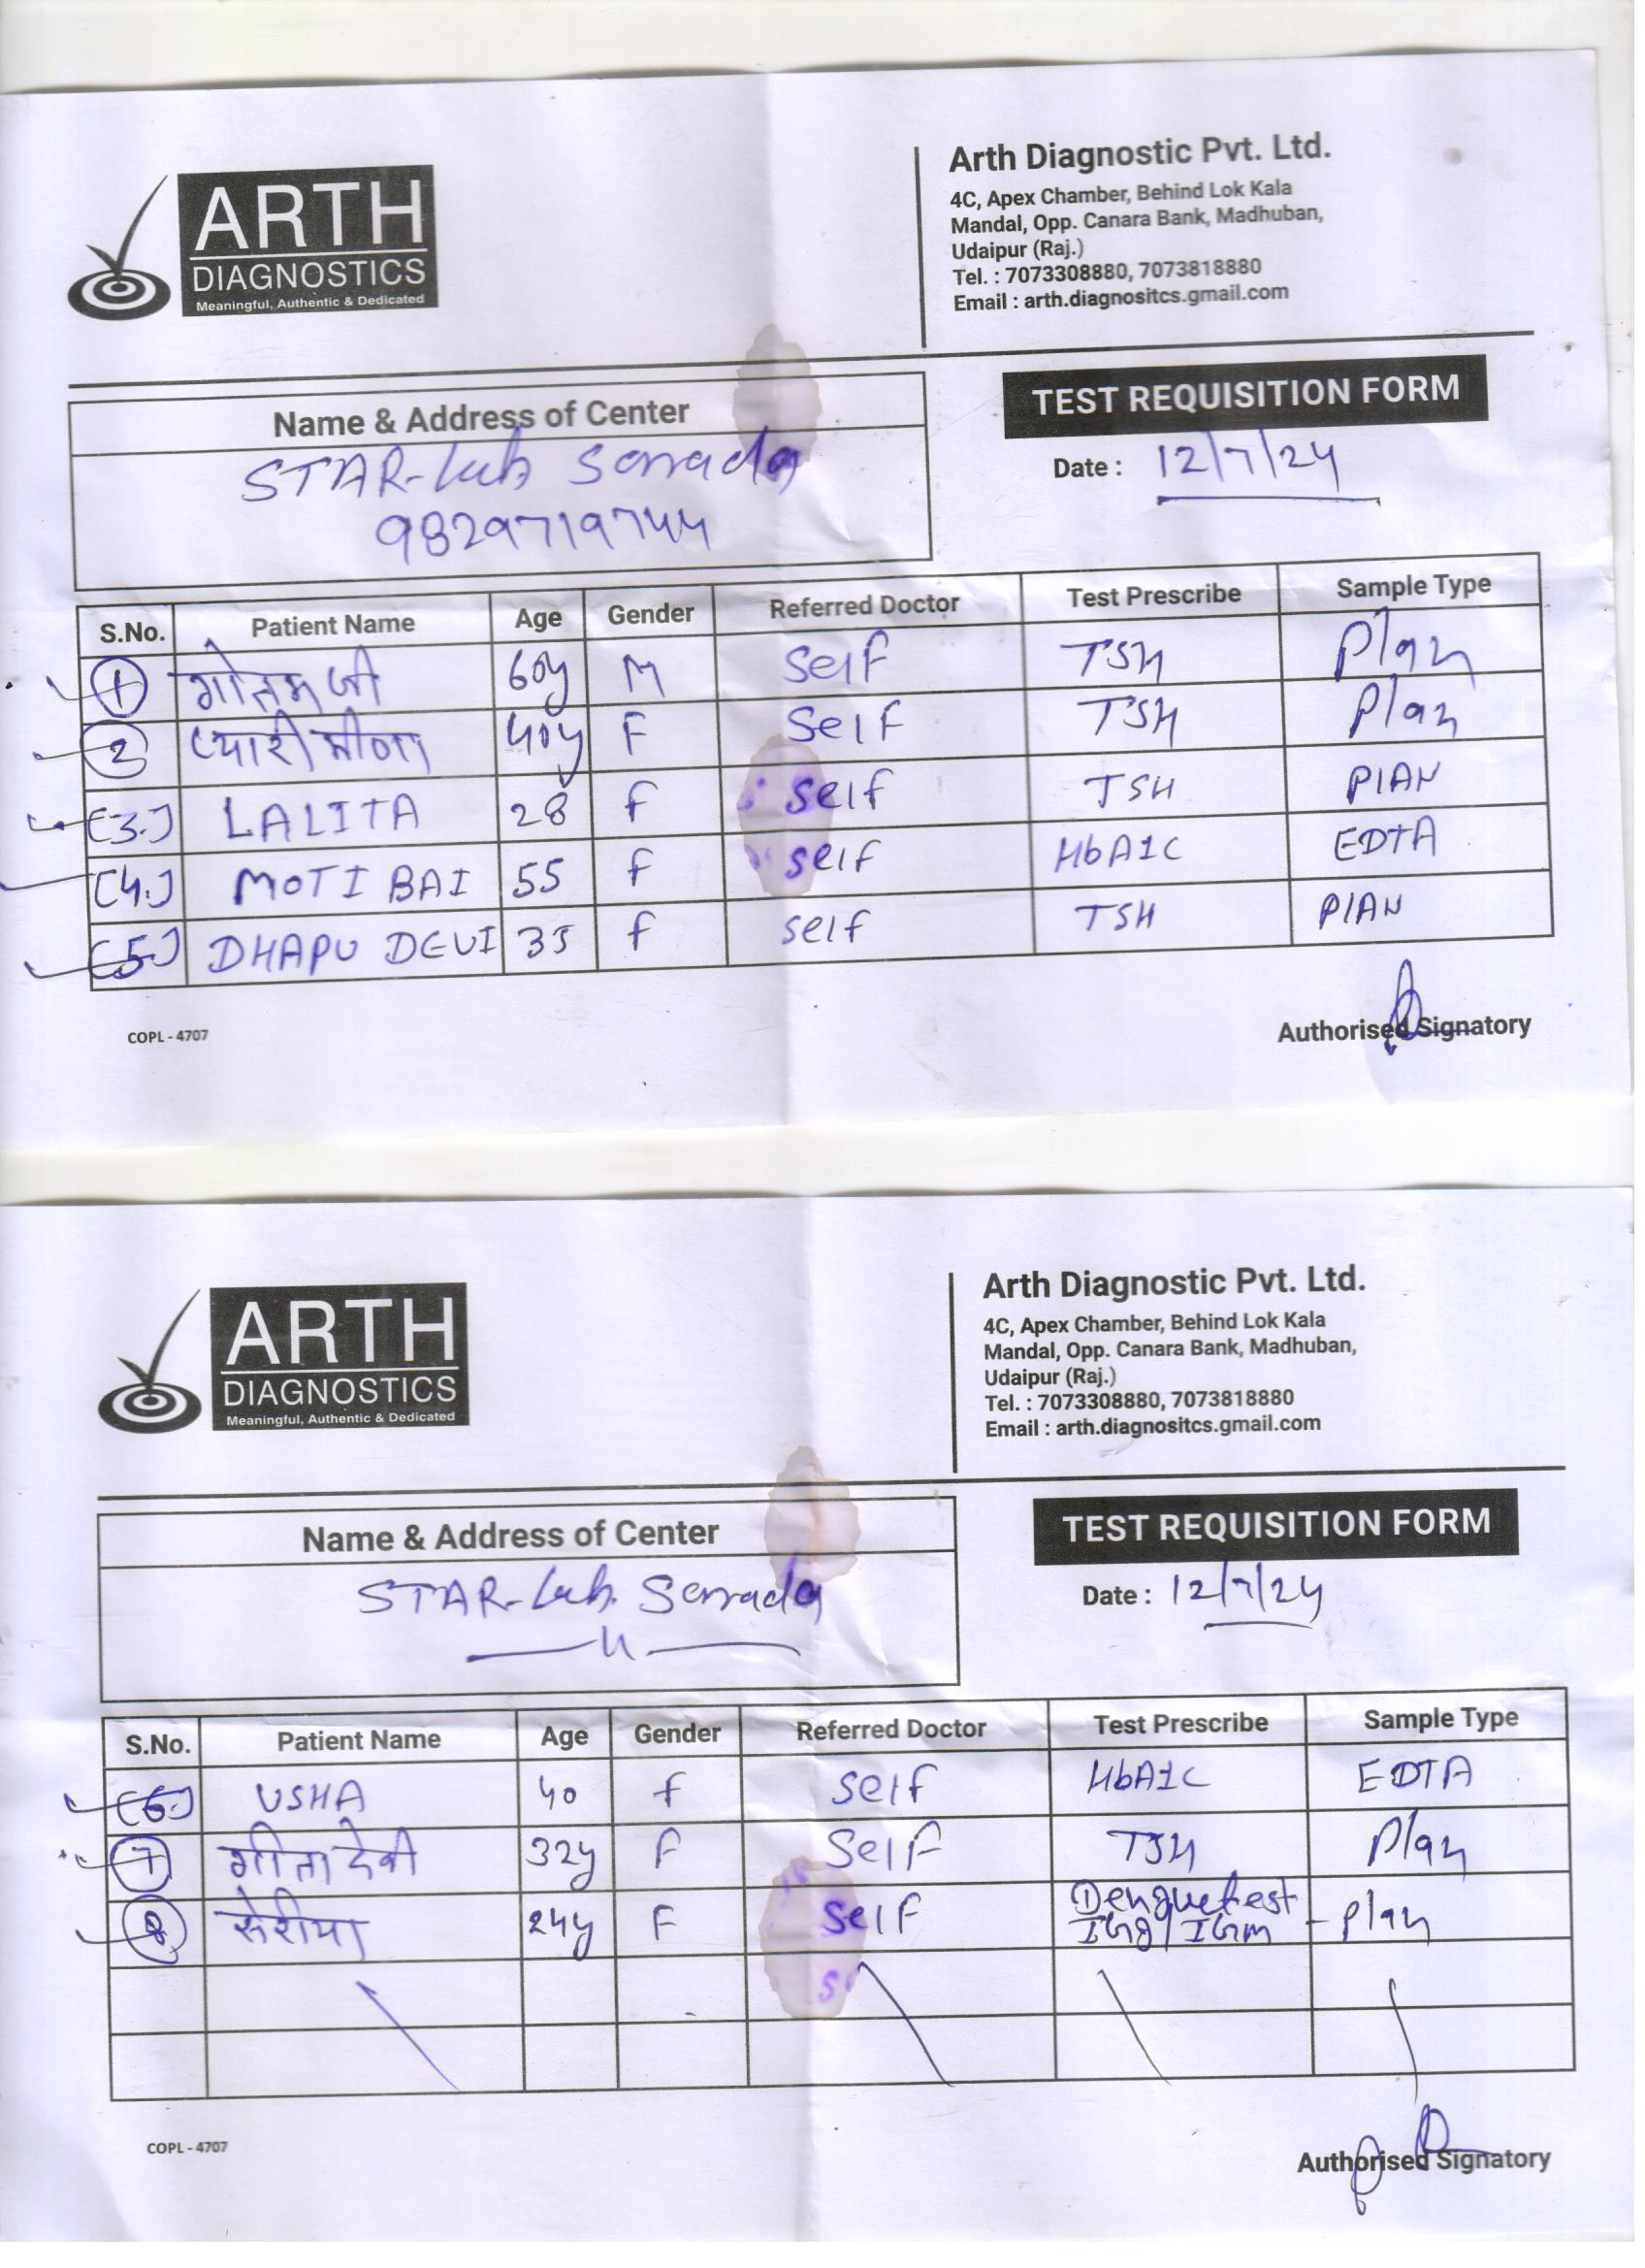 ARTH
DIAGNOSTICS
Meaningful, Authentic & Dedicated
Arth Diagnostic Pvt. Ltd.
4C, Apex Chamber, Behind Lok Kala
Mandal, Opp. Canara Bank, Madhuban,
Udaipur (Raj.)
Tel. : 7073308880, 7073818880
Email : arth.diagnositcs.gmail.com
Name & Address of Center
STAR-Lab Sarrada
9829719744
TEST REQUISITION FORM
Date : 12/7/24
S.No. Patient Name Age Gender Referred Doctor Test Prescribe Sample Type
1 गोतम जी 60y M Self TSH Plan
2 प्यारी मीणा 40y F Self TSH Plan
(3.) LALITA 28 f self TSH PlAN
(4.) MOTI BAI 55 f self HbA1C EDTA
(5.) DHAPU DEVI 35 f self TSH PlAN
COPL - 4707
Authorised Signatory
ARTH
DIAGNOSTICS
Meaningful, Authentic & Dedicated
Arth Diagnostic Pvt. Ltd.
4C, Apex Chamber, Behind Lok Kala
Mandal, Opp. Canara Bank, Madhuban,
Udaipur (Raj.)
Tel. : 7073308880, 7073818880
Email : arth.diagnositcs.gmail.com
Name & Address of Center
STAR-Lab. Sarrada
—॥—
TEST REQUISITION FORM
Date : 12/7/24
S.No. Patient Name Age Gender Referred Doctor Test Prescribe Sample Type
(6.) USHA 40 f self HbA1C EDTA
7 गीता देवी 32y F Self TSH Plan
8 24y F Self Dengue test IGg/IGm - Plan
COPL - 4707
Authorised Signatory